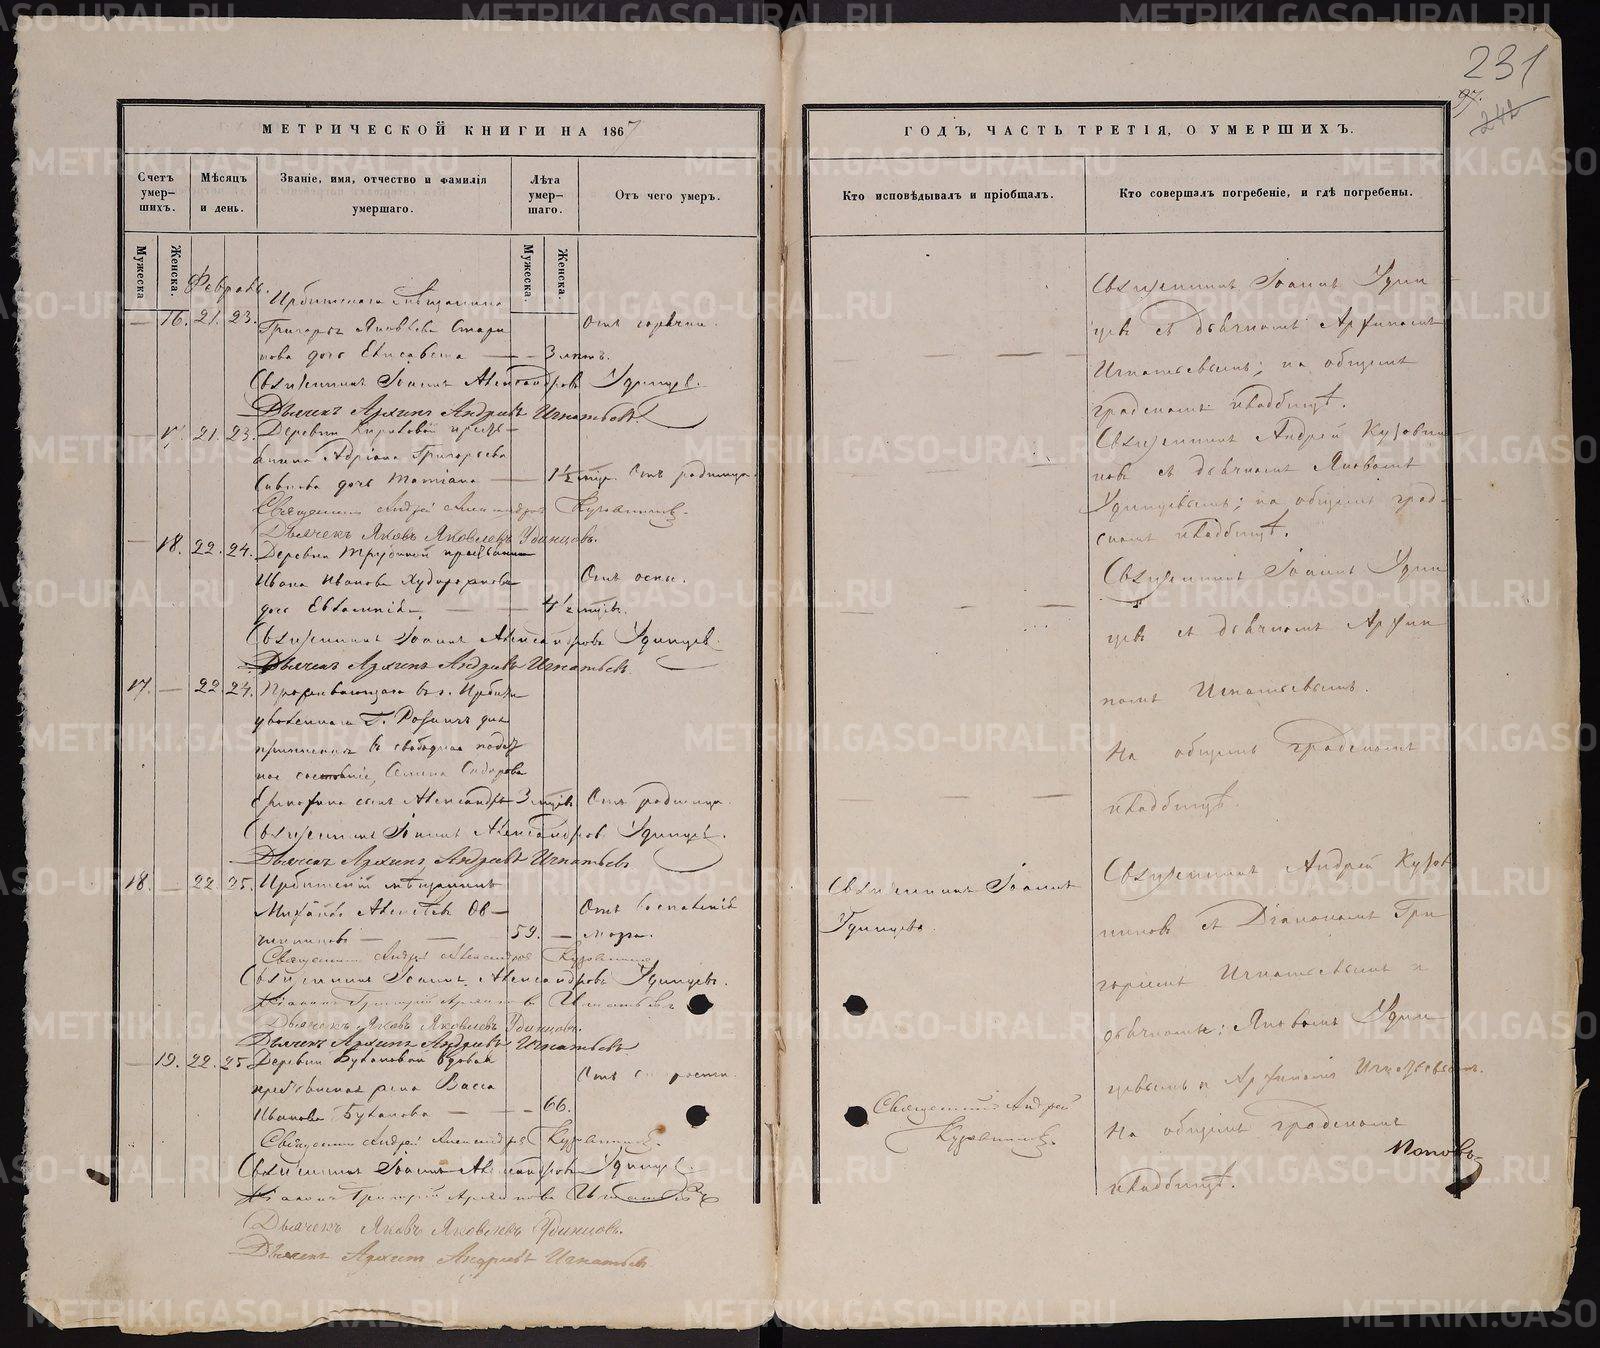 231
97.
242
МЕТРИЧЕСКОЙ КНИГИ НА 1867
Счетъ умер-шихъ.
Мѣсяцъ и день.
Званіе, имя, отчество и фамилія умершаго.
Лѣта умер-шаго.
Отъ чего умеръ.
Мужеска
Женска.
Мужеска.
Женска.
Февраль.
Ирбитскаго мѣщанина
— 16. 21. 23. Григорья Яковлева Стари
кова дочь Елисавета — — 3 лѣтъ. Отъ горячки.
Священникъ Іоаннъ Александровъ Удинцевъ.
Дьячекъ Архипъ Андреевъ Игнатьевъ
— 17. 21. 23. Деревни Кириковой кресть-
янина Адріана Григорьева
дочь Татіана — 1½ мѣс. Отъ родимца.
Священникъ Андрей Александровъ
Дьячекъ Яковъ Яковлевъ Удинцовъ.
— 18. 22. 24. Деревни Трубиной крестьянина
Ивана Иванова Худорожкова Отъ оспы.
дочь Евлампія — — 4½ мѣсяц.
Священникъ Іоаннъ Александровъ Удинцев
Дьячекъ Архипъ Андреевъ Игнатьевъ
17. — 22. 24. Проживающаго въ г. Ирбити
уволеннаго Г.
въ свободное подат
ное состояніе, Сидорова
сынъ Александръ 3 мѣсяц. Отъ родимца.
Священникъ Іоаннъ Александровъ Удинцевъ.
Дьячекъ Архипъ Андреевъ Игнатьевъ
18. — 22. 25. Ирбитскій мѣщанинъ
Михаилъ Алексѣевъ Ов- Отъ воспаленія
чинниковъ — — 59. — мозга.
Священникъ Андрей Александровъ
Священникъ Іоаннъ Александровъ Удинцевъ.
Діаконъ Григорій Игнатьевъ
Дьячекъ Яковъ Яковлевъ Удинцовъ.
Дьячекъ Архипъ Андреевъ Игнатьевъ
— 19. 22. 25. Деревни Булановой вдовая
крестьянская жена Васса Отъ старости.
Иванова Буланова — — 66.
Священникъ Андрей Александровъ
Священникъ Іоаннъ Александровъ Удинцев.
Діаконъ Григорій Игнатьевъ
Дьячекъ Яковъ Яковлевъ Удинцовъ.
Дьячекъ Архипъ Андреевъ Игнатьевъ
ГОДЪ, ЧАСТЬ ТРЕТІЯ, О УМЕРШИХЪ.
Кто исповѣдывалъ и пріобщалъ.
Кто совершалъ погребеніе, и гдѣ погребены.
Священникъ Іоаннъ Удин
цевъ съ дьячкомъ Архипомъ
Игнатьевымъ; на общемъ
градскомъ кладбищѣ.
Священникъ Андрей
съ дьячкомъ Яковомъ
Удинцевымъ; на общемъ град-
скомъ кладбищѣ.
Священникъ Іоаннъ Удин
цевъ съ дьячкомъ Архи
помъ Игнатьевымъ.
На общемъ градскомъ
кладбищѣ.
Священникъ Іоаннъ
Удинцевъ.
Священникъ Андрей
съ Діакономъ Гри
горіемъ Игнатьевымъ и
дьячками: Яковомъ Удин
цевымъ и Архипомъ Игнатьевымъ.
На общемъ градскомъ
кладбищѣ.
Священникъ Андрей
Поповъ
METRIKI.GASO-URAL.RU